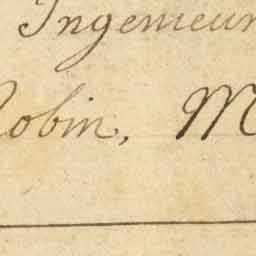 Ingenieur
Robin, M